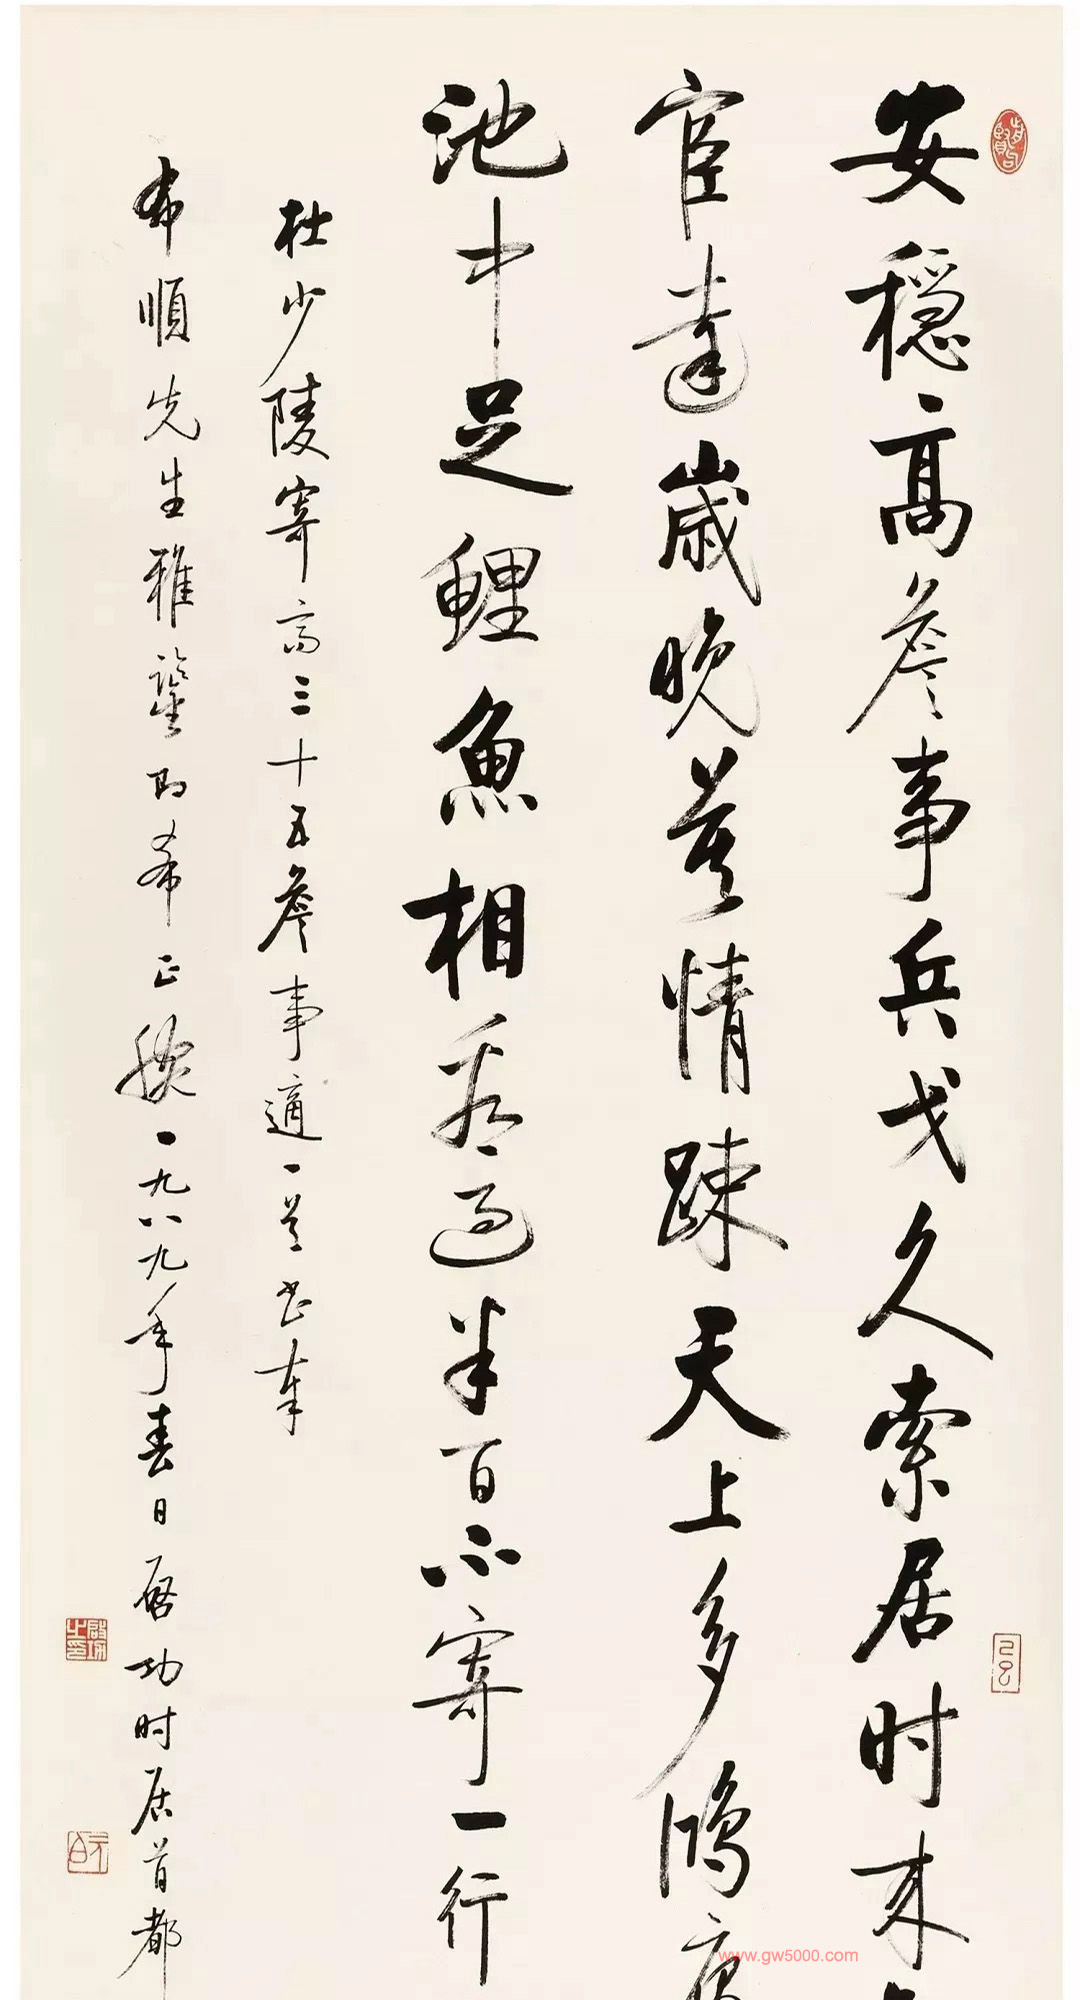 安穩高詹事兵戈久索居时来
宦達歲晚莫情踈天上多鴻
池中足鯉魚相看過半百不寄一行
杜少陵寄高三十五詹事適一首书奉
希順先生雅鑒即希正腕一九八九年春日啟功时居首都
啟功之印
www.gw5000.com